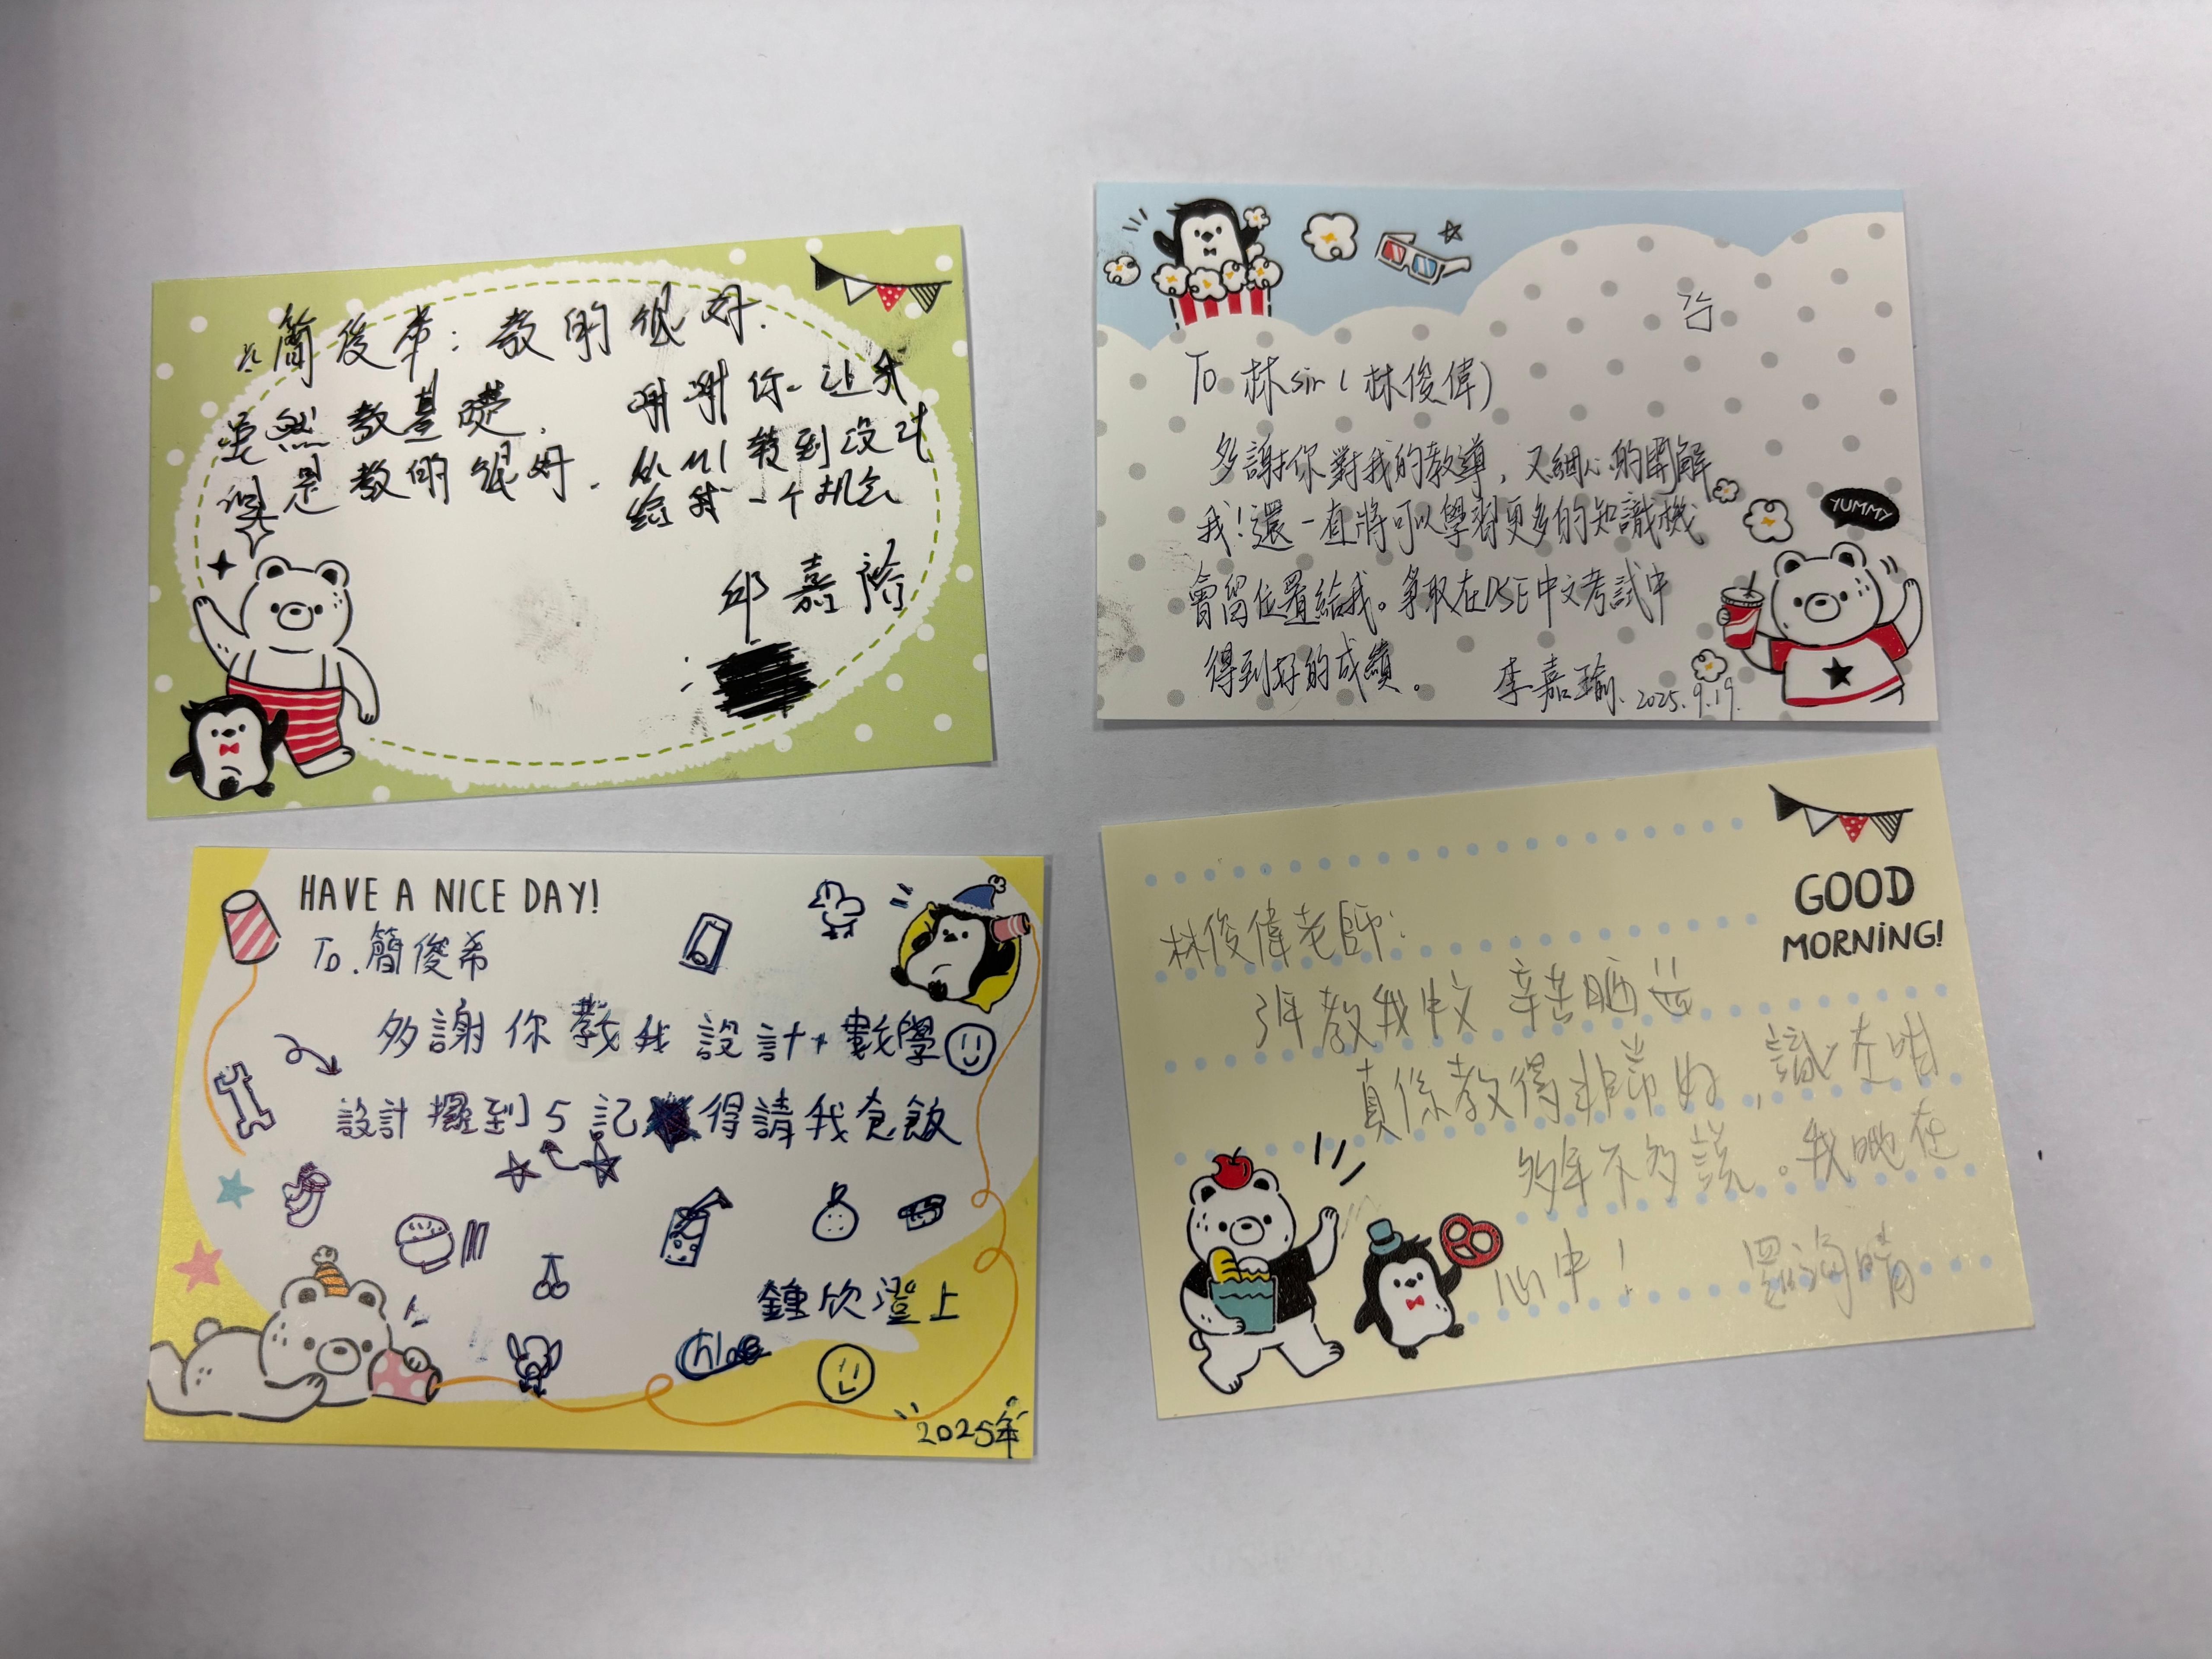 簡俊希：教的很好.
虽然教基礎. 谢谢你让我
但是教的很好. 从M1转到设计
给我一个机会
邱嘉裕
To 林sir (林俊偉)
多謝你對我的教導，又細心的開解
我！還一直將可以學習更多的知識機
會留位置給我。爭取在DSE中文考試中
得到好的成績。
李嘉瑜. 2025.9.19.
YUMMY
HAVE A NICE DAY!
To.簡俊希
多謝你教我設計+數學
設計攞到5記得請我食飯
鍾欣澄上
Chloe
2025年
GOOD
MORNING!
林俊偉老師：
3年教我中文 辛苦晒
真係教得非常好，識在咁
多年不多說。我哋在
心中！